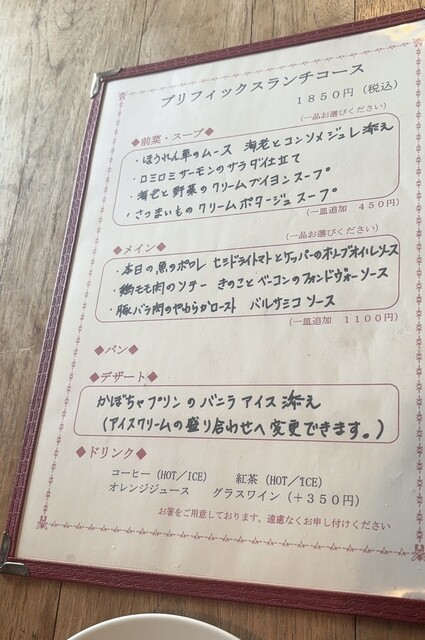 プリフィックスランチコース
1850円（税込）
（一品お選びください）
◆前菜・スープ◆
・ほうれん草のムース 海老とコンソメジュレ添え
・ロミロミサーモンのサラダ仕立て
・海老と野菜のクリームブイヨンスープ
・さつまいものクリームポタージュスープ
（一皿追加 450円）
（一品お選びください）
◆メイン◆
・本日の魚のポワレ セミドライトマトとケッパーのオリーブオイルソース
・鶏モモ肉のソテー きのことベーコンのフォンドヴォーソース
・豚バラ肉のやわらかロースト バルサミコソース
（一皿追加 1100円）
◆パン◆
◆デザート◆
かぼちゃプリンのバニラアイス添え
（アイスクリームの盛り合わせへ変更できます。）
◆ドリンク◆
コーヒー（HOT／ICE） 紅茶（HOT／ICE）
オレンジジュース グラスワイン（＋350円）
お箸をご用意しております。遠慮なくお申し付けください